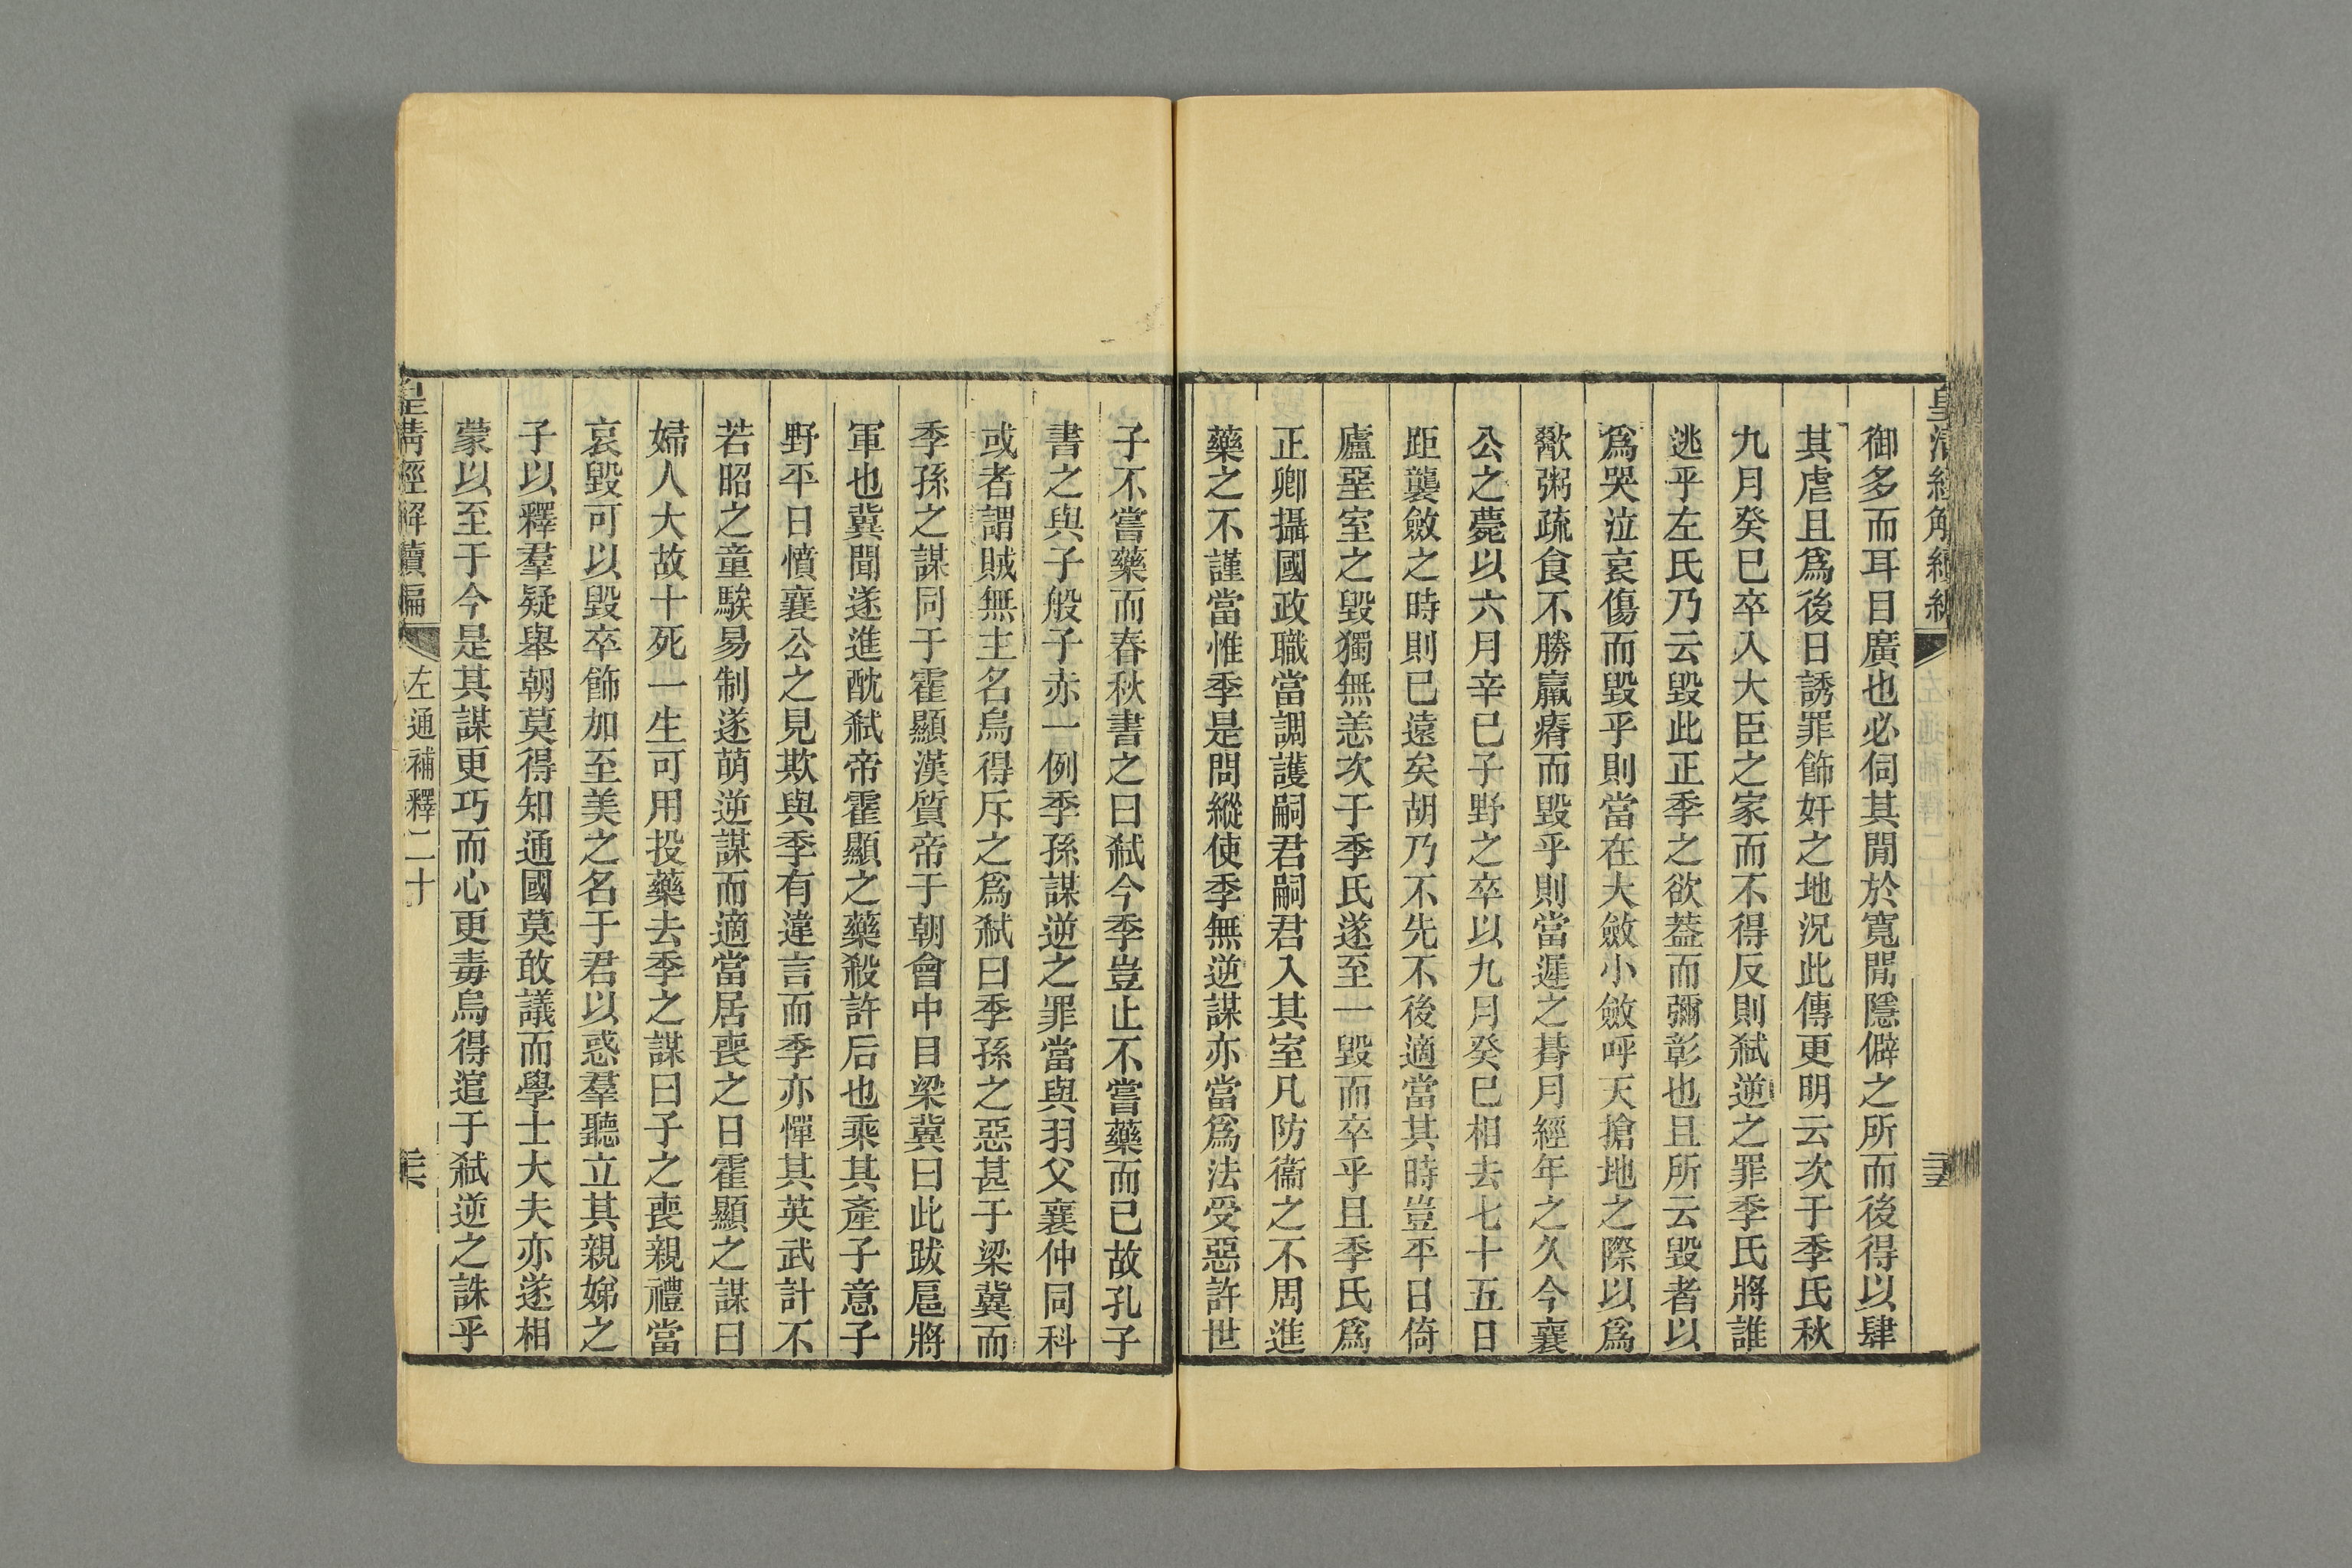 御多而耳目廣也必伺其閒於寬閒隱僻之所而後得以肆
其虐且爲後日誘罪飾奸之地況此傳更明云次于季氏秋
九月癸巳卒入大臣之家而不得反則弒逆之罪季氏將誰
逃乎左氏乃云毀此正季之欲蓋而彌彰也且所云毀者以
爲哭泣哀傷而毀乎則當在大斂小斂呼天搶地之際以爲
歠粥疏食不勝羸瘠而毀乎則當遲之朞月經年之久今襄
公之薨以六月辛巳子野之卒以九月癸巳相去七十五日
距襲斂之時則已遠矣胡乃不先不後適當其時豈平日倚
廬堊室之毀獨無恙次于季氏遂至一毀而卒乎且季氏爲
正卿攝國政職當調護嗣君嗣君入其室凡防衞之不周進
藥之不謹當惟季是問縱使季無逆謀亦當爲法受惡許世
子不嘗藥而春秋書之曰弒今季豈止不嘗藥而已故孔子
書之與子般子赤一例季孫謀逆之罪當與羽父襄仲同科
或者謂賊無主名烏得斥之爲弒曰季孫之惡甚于梁冀而
季孫之謀同于霍顯漢質帝于朝會中目梁冀曰此跋扈將
軍也冀聞遂進酖弒帝霍顯之藥殺許后也乘其產子意子
野平日憤襄公之見欺與季有違言而季亦憚其英武計不
若昭之童騃易制遂萌逆謀而適當居喪之日霍顯之謀曰
婦人大故十死一生可用投藥去季之謀曰子之喪親禮當
哀毀可以毀卒飾加至美之名于君以惑羣聽立其親娣之
子以釋羣疑舉朝莫得知通國莫敢議而學士大夫亦遂相
蒙以至于今是其謀更巧而心更毒烏得逭于弒逆之誅乎
皇清經解續編
左通補釋二十